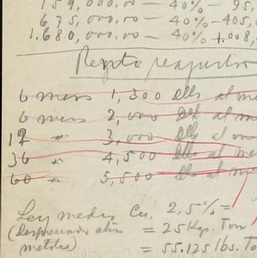 159,000,00 — 40% — 95,
675,000,00 — 40% — 405,
1.680,000,00 — 40% 1.008,
6 meses 1,300 dlls al me
6 meses 2,000 dlls al me
12 " 3,000 dlls al m
36 " 4,500 dlls al me
60 " 5,500 dlls al me
Ley media Cu. 2,5% =
= 25 Kgs. Ton
metales) = 55.125 lbs. To